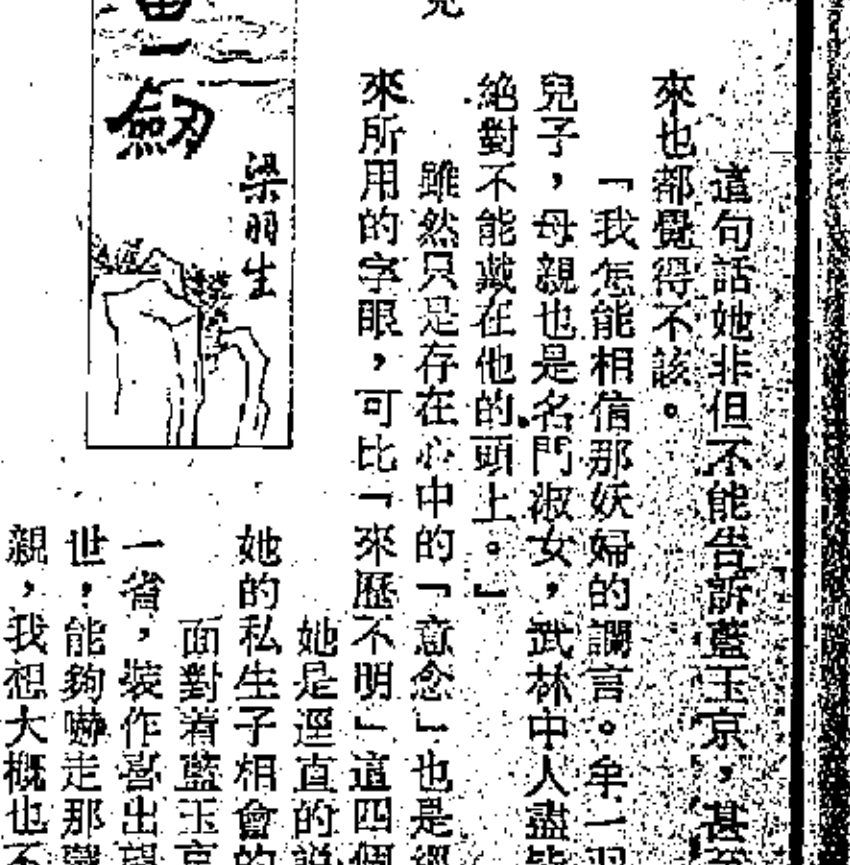 這句話她非但不能告訴藍玉京,甚至
來也都覺得不該。
「我怎能相信那妖婦的讕言。牟一羽
兒子,母親也是名門淑女,武林中人盡皆
絕對不能戴在他的頭上。」
雖然只是存在心中的「意念」也是經
來所用的字眼,可比「來歷不明」這四個
她是逕直的說
她的私生子相會的
面對着藍玉京
一省,裝作喜出望
世,能夠嚇走那
親,我想大概也不
一劍
梁羽生